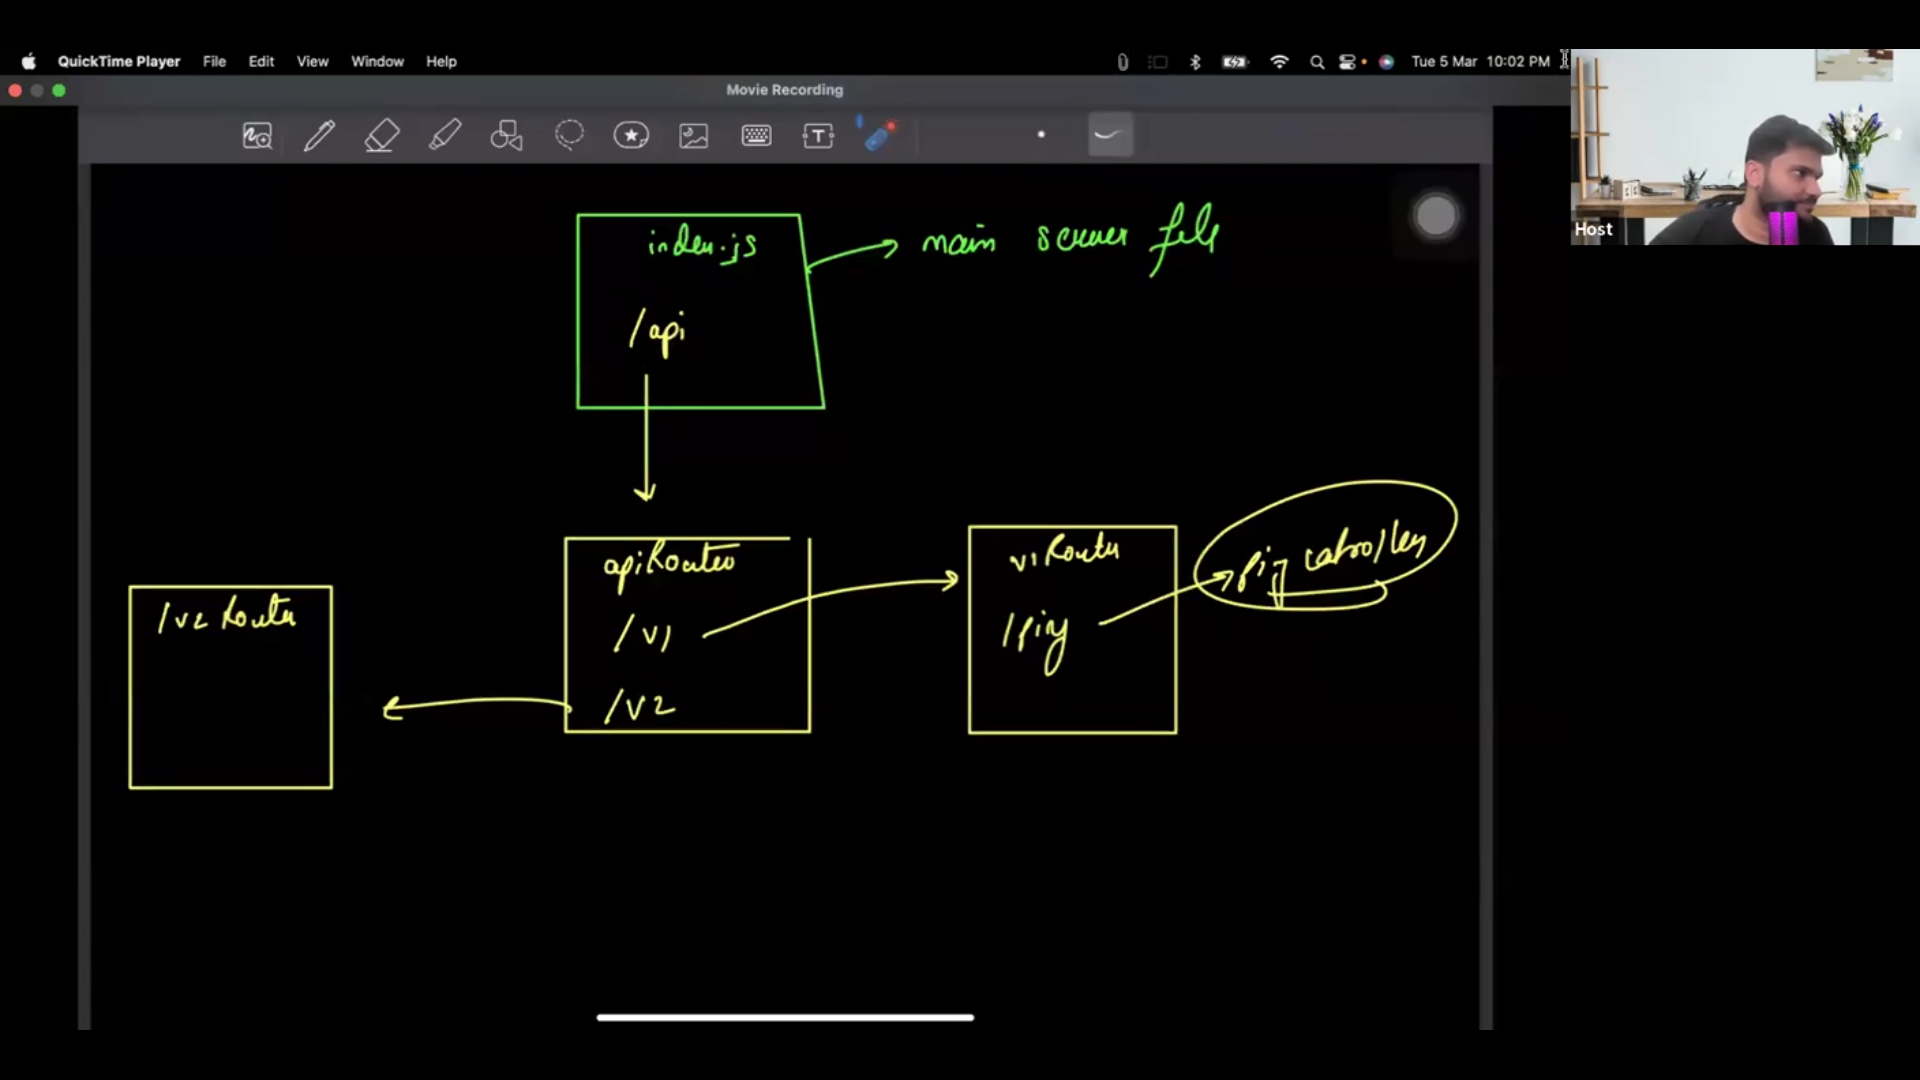 QuickTime Player File Edit View Window Help
Tue 5 Mar 10:02 PM
Movie Recording
Host
index.js
main server file
/api
apiRouter
/v1
/v2
v1 Router
/ping
ping controller
/v2 Router